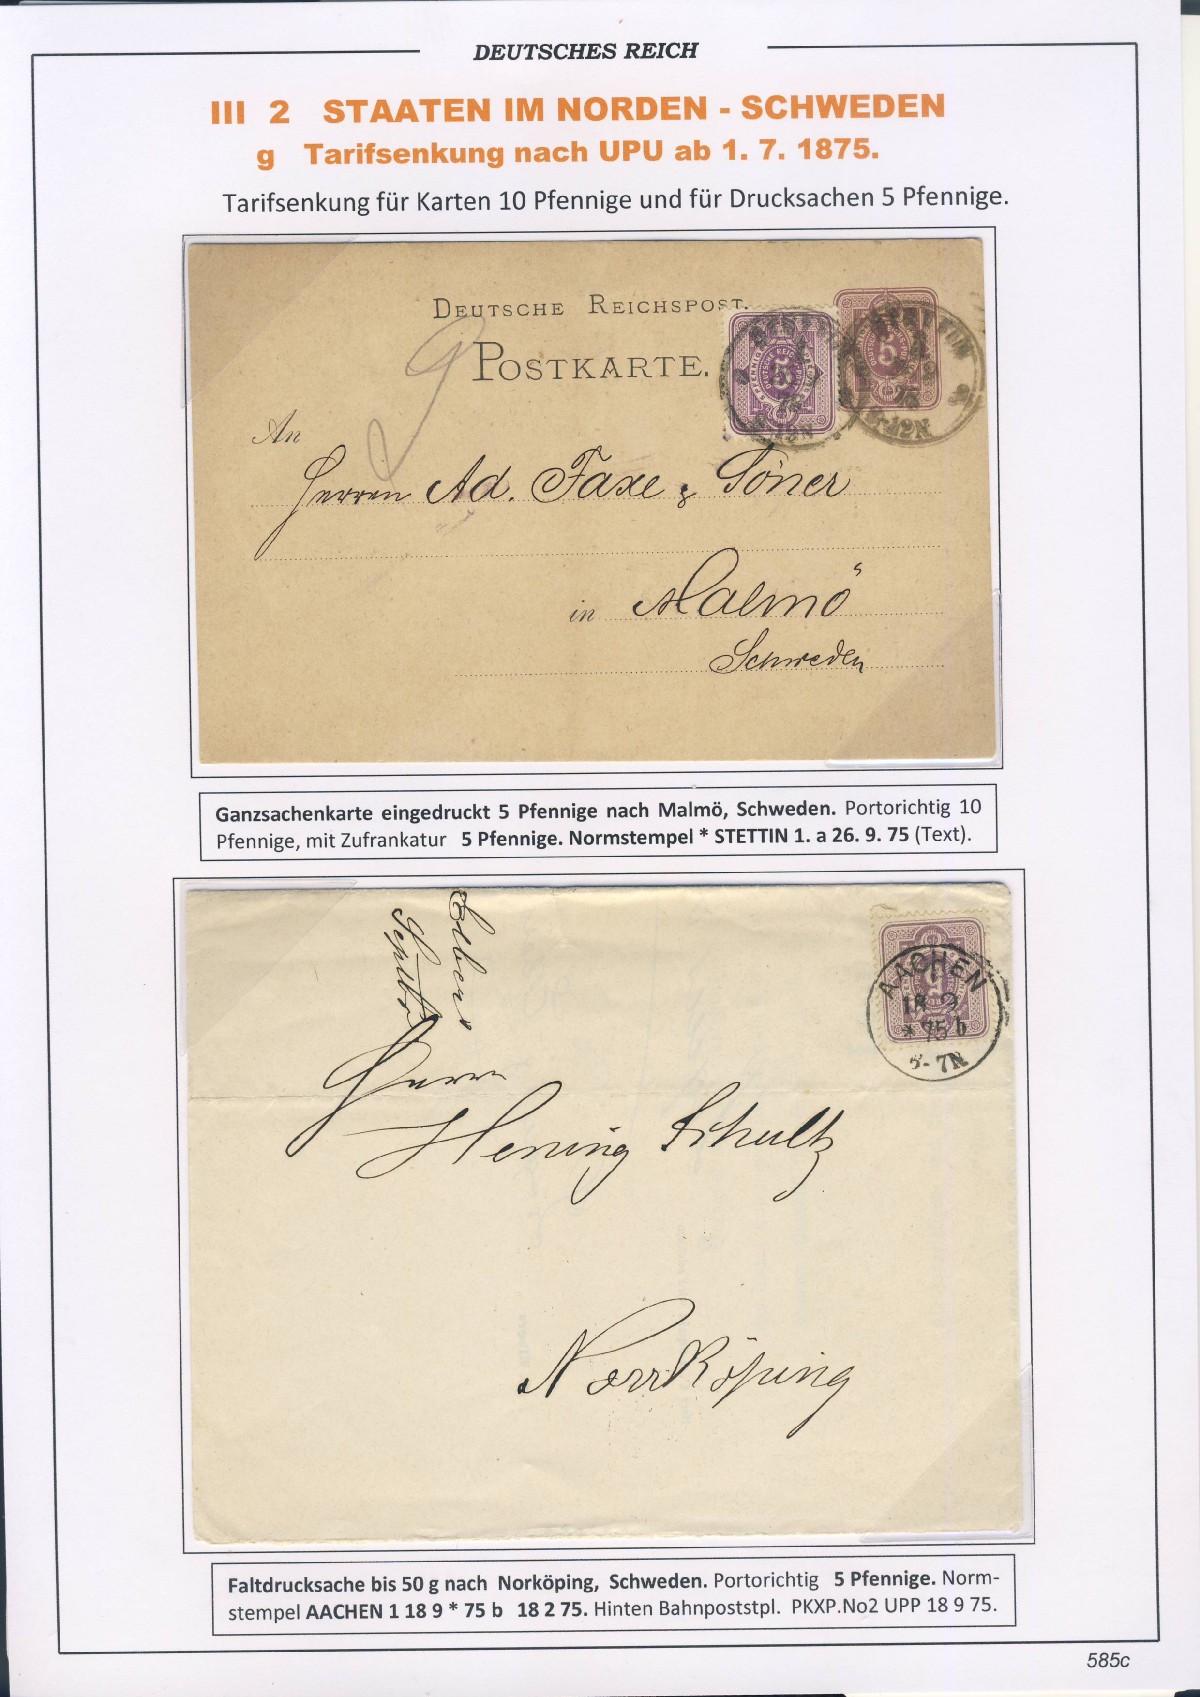 DEUTSCHES REICH
III 2 STAATEN IM NORDEN - SCHWEDEN
g Tarifsenkung nach UPU ab 1. 7. 1875.
Tarifsenkung für Karten 10 Pfennige und für Drucksachen 5 Pfennige.
DEUTSCHE REICHSPOST.
POSTKARTE.
5
5
75
8-12N
An
Herren Ad. Faxe & Söner
in Malmö
Schweden
Ganzsachenkarte eingedruckt 5 Pfennige nach Malmö, Schweden. Portorichtig 10
Pfennige, mit Zufrankatur 5 Pfennige. Normstempel * STETTIN 1. a 26. 9. 75 (Text).
AACHEN
18 9
* 75 b
6-7N
Herrn
Hening Schultz
Norrköping
Faltdrucksache bis 50 g nach Norköping, Schweden. Portorichtig 5 Pfennige. Norm-
stempel AACHEN 1 18 9 * 75 b 18 2 75. Hinten Bahnpoststpl. PKXP.No2 UPP 18 9 75.
585c